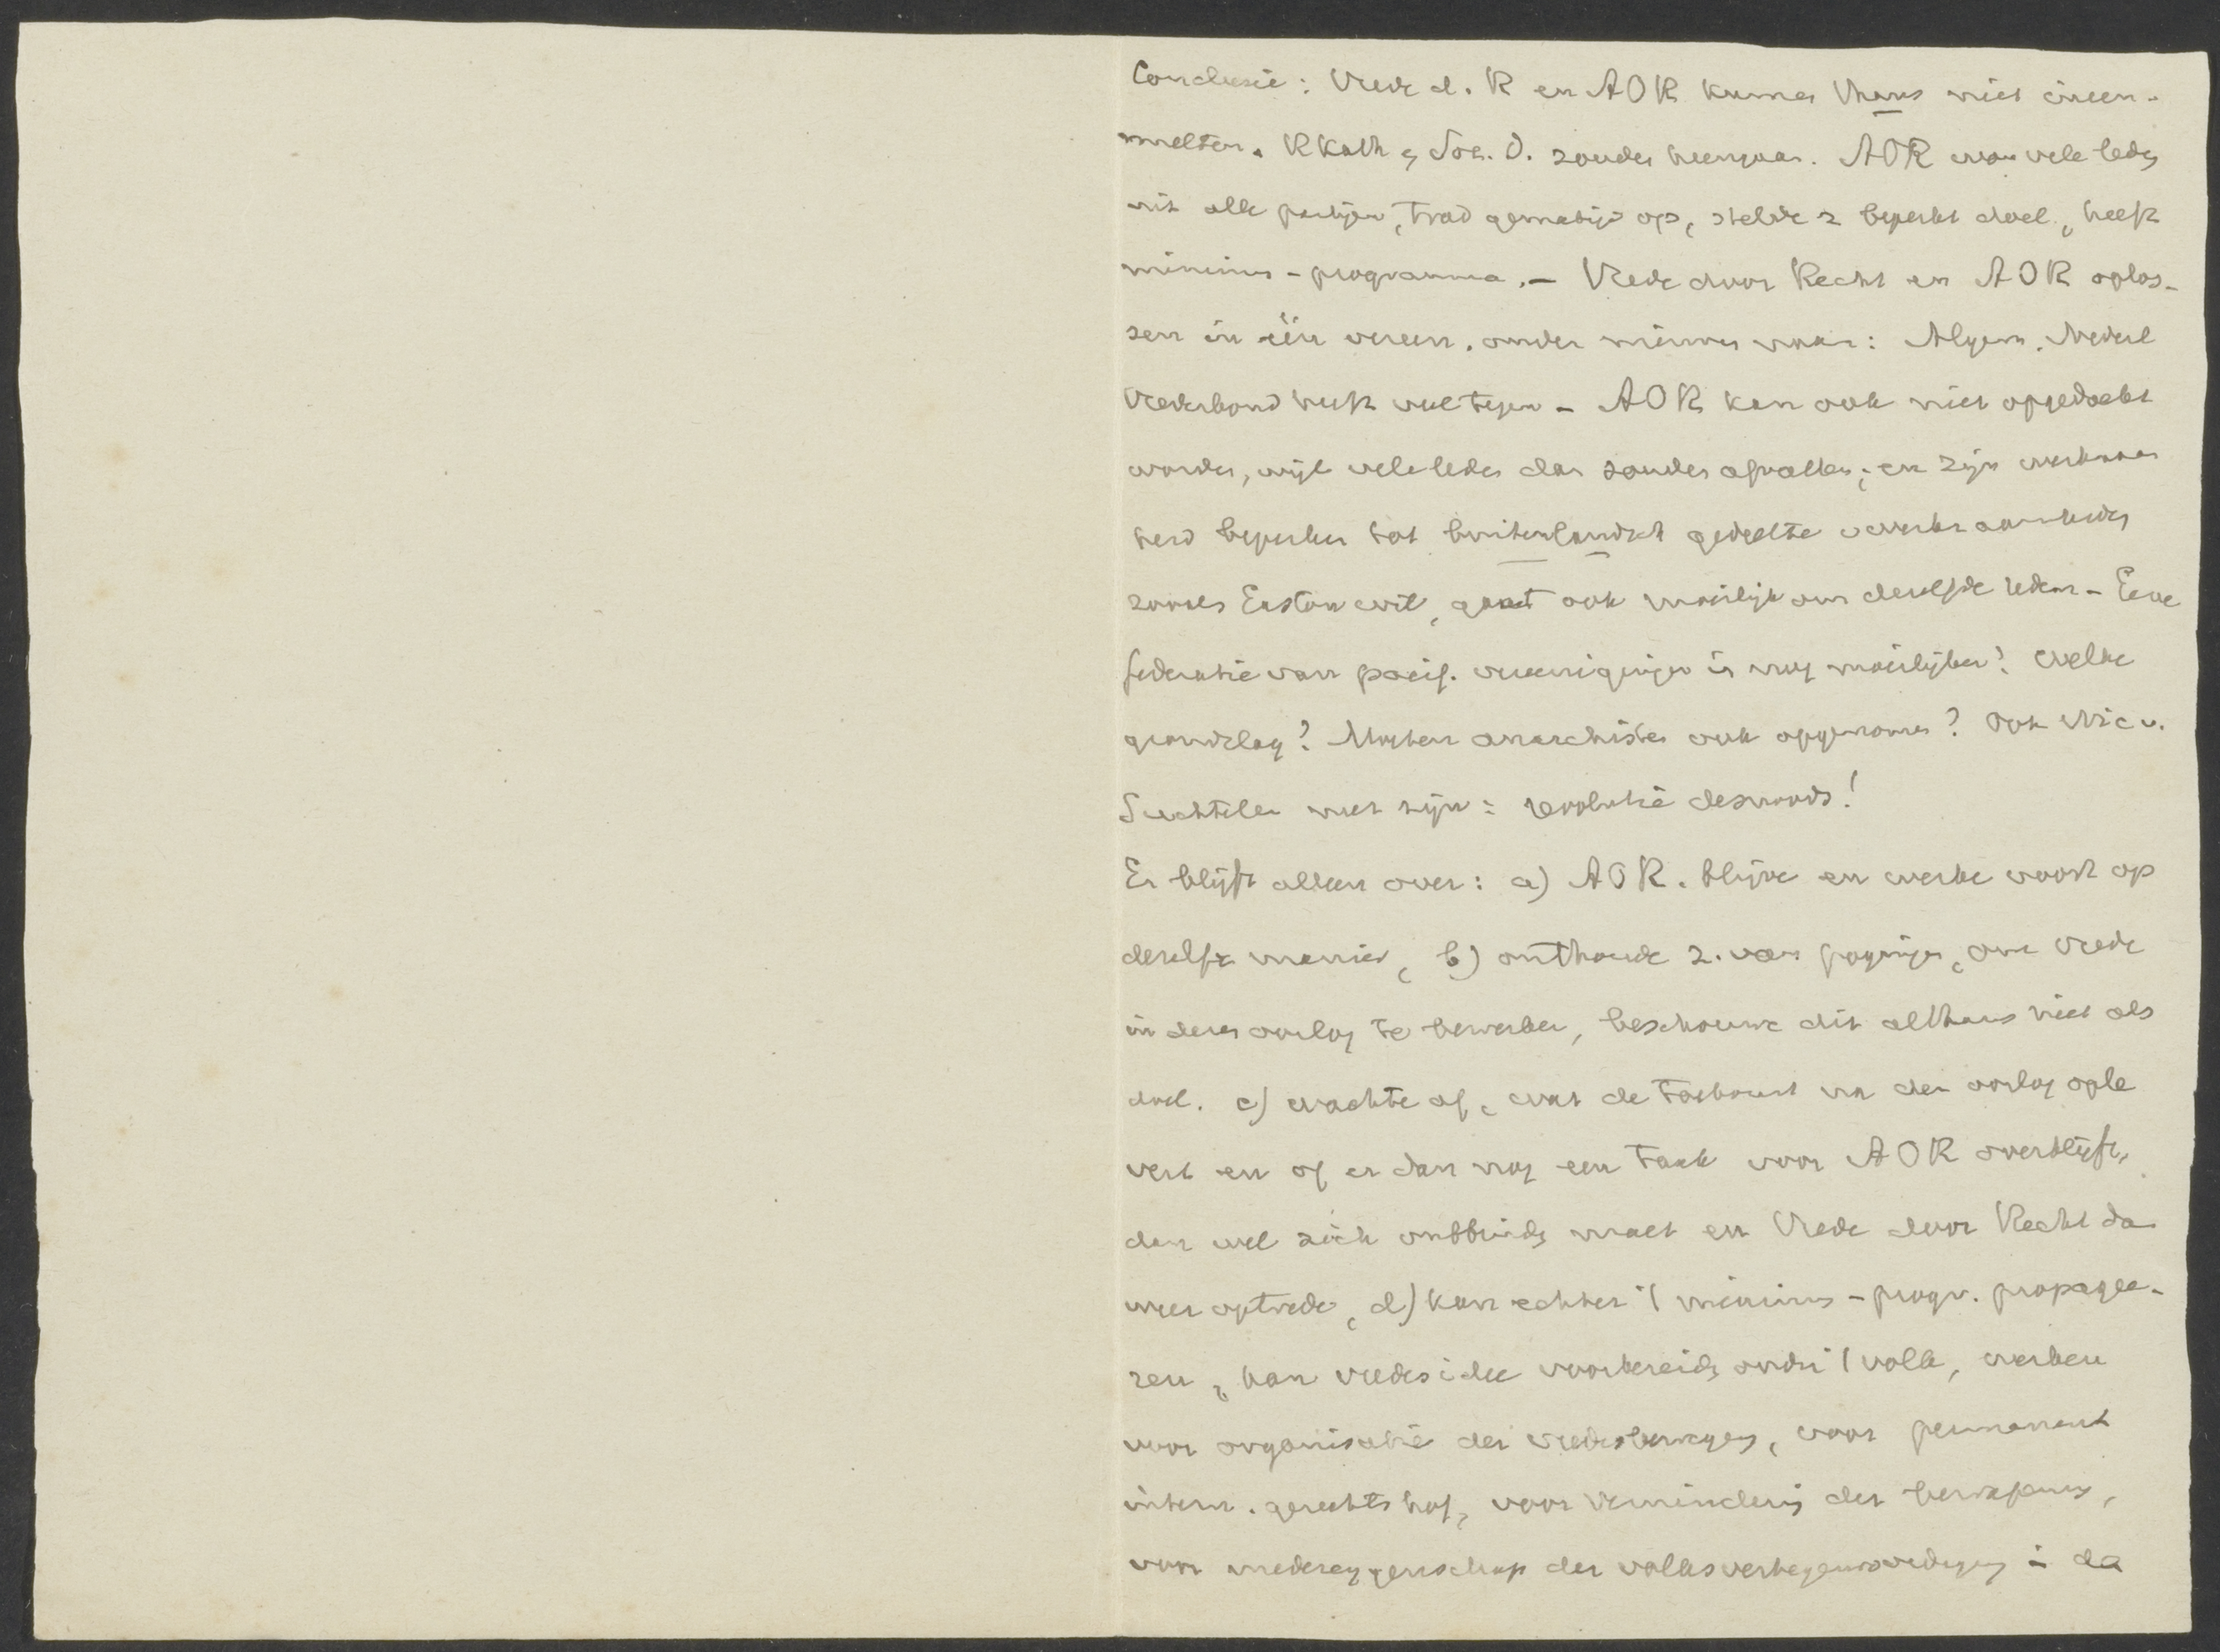 Conclusie: Vrede d. R en AOR kunnen thans niet ineen-
smelten. RKath en Soc. D. zouden heengaan. AOR won vele leden
uit alle partijen, trad gematigd op, stelde z beperkt doel, heeft
minimum-programma. – Vrede door Recht en AOR oplos-
sen in één vereen. onder nieuwe naam: Algem. Nederl
Vredesbond heeft veel tegen – AOR kan ook niet opgedoekt
worden, wijl vele leden dan zouden afvallen; en zijn werkzaam
heid beperken tot buitenlandsch gedeelte werkzaamheden
zooals Easton wil, gaat ook moeilijk om dezelfde reden – Eene
federatie van pacif. vereenigingen is nog moeilijker! Welke
grondslag? Mogten anarchisten ook opgenomen? Ook Nic v.
Suchtelen met zijn: revolutie desnoods!
Er blijft alleen over: a) AOR. blijve en werke voort op
dezelfde manier, b) onthoude z. van pogingen, om vrede
in dezen oorlog te bewerken, beschouwe dit althans niet als
doel. c) wachte af, wat de toekomst na den oorlog ople
vert en of er dan nog een taak voor AOR overblijft,
dan wel zich ontbinden moet en Vrede door Recht dan
weer optrede, d) kan echter 't minimum-progr. propagee-
ren, kan vredesidee voorbereiden onder 't volk, werken
voor organisatie der vredesbeweging, voor permanent
intern. gerechtshof, voor vermindering der bewapening,
voor medezeggenschap der volksvertegenwoordiging in de